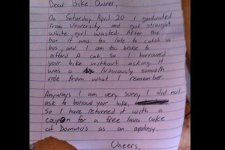 Dear Bike Owner,
On Saturday April 20 I graduated
from University and got straight
white girl wasted. After the
bar it was too late to catch a
bus, and I am too broke to
afford a cab. So I borrowed
your bike without asking it
was a hilariously smooth
ride from what I remember.
Anyways I am very sorry I did not
ask to borrow your bike,
So I have returned it with a
coupon for a free lava cake
at Domino's as an apology.
Cheers,